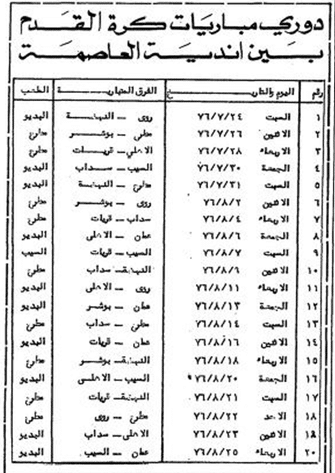 دوري مباريات كرة القدم
بين اندية العاصمة
رقم اليوم والتاريخ الفرق المتبارية الملعب
١ السبت ٧٦/٧/٢٤ روى – النهضة البديو
٢ الاثنين ٧٦/٧/٢٦ مطرح – بوشر مطرح
٣ الاربعاء ٧٦/٧/٢٨ الاهلي – قريات البديو
٤ الجمعة ٧٦/٧/٣٠ السيب – سداب البديو
٥ السبت ٧٦/٧/٣١ مطرح – النهضة البديو
٦ الاثنين ٧٦/٨/٢ روى – بوشر مطرح
٧ الاربعاء ٧٦/٨/٤ سداب – قريات مطرح
٨ الجمعة ٧٦/٨/٦ عمان – الاهلى البديو
٩ السبت ٧٦/٨/٧ السيب – قريات السيب
١٠ الاثنين ٧٦/٨/٩ النهضة – سداب مطرح
١١ الاربعاء ٧٦/٨/١١ روى – الاهلى البديو
١٢ الجمعة ٧٦/٨/١٣ عمان – بوشر البديو
١٣ السبت ٧٦/٨/١٤ مطرح – سداب مطرح
١٤ الاثنين ٧٦/٨/١٦ عمان – قريات البديو
١٥ الاربعاء ٧٦/٨/١٨ النهضة – بوشر البديو
١٦ الجمعة ٧٦/٨/٢٠ السيب – الاهلى مطرح
١٧ السبت ٧٦/٨/٢١ النهضة – قريات مطرح
١٨ الاحد ٧٦/٨/٢٢ مطرح – روى مطرح
١٩ الاثنين ٧٦/٨/٢٣ الاهلى – سداب مطرح
٢٠ الاربعاء ٧٦/٨/٢٥ عمان – السيب البديو